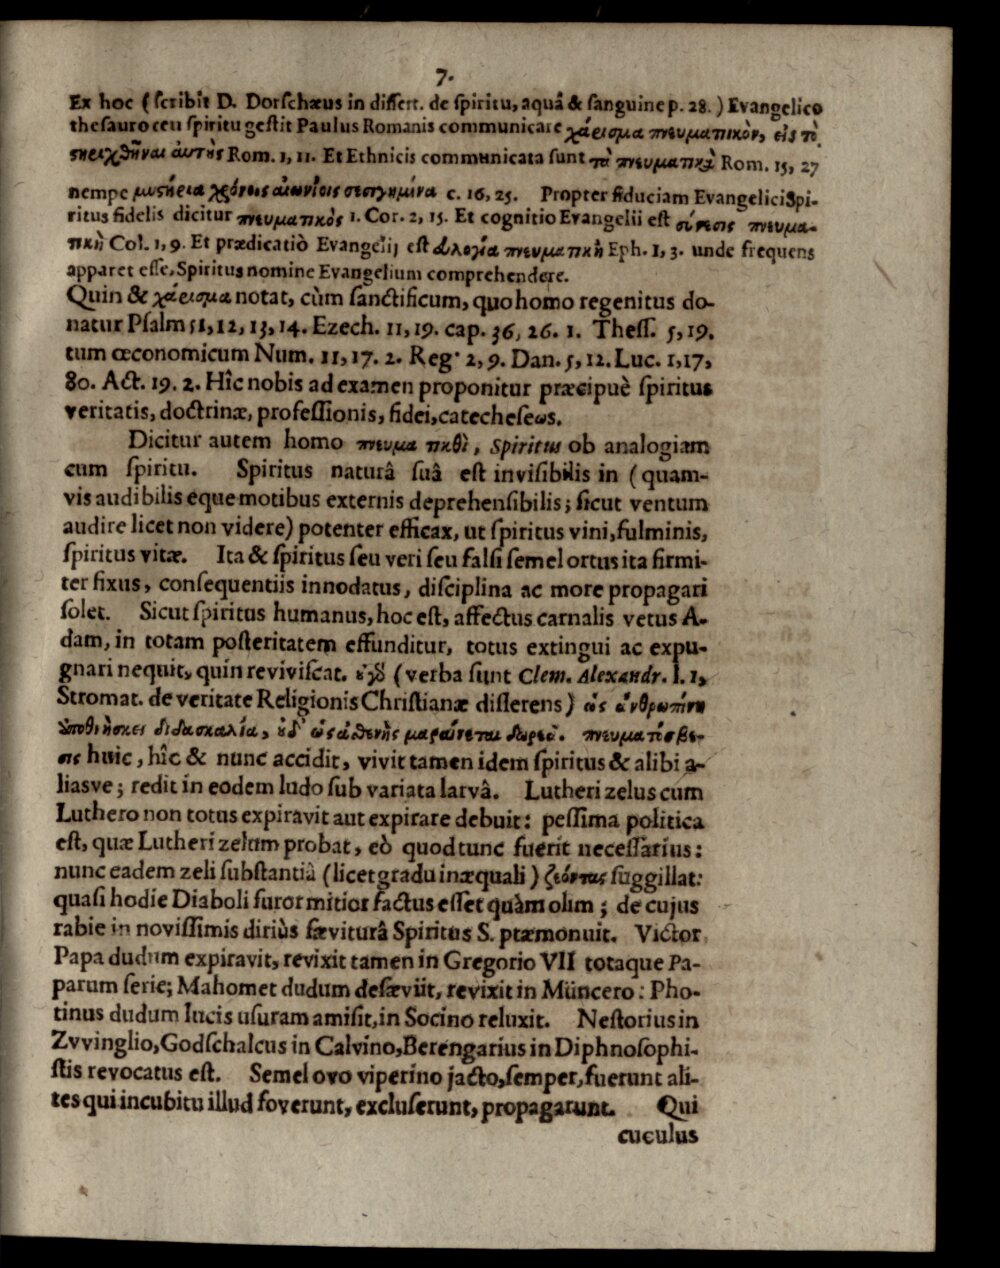 7.
Ex hoc (ſcribit D. Dorſchæus in diſſert. de ſpiritu, aquâ & ſanguine p. 28.) Evangelico
theſauro ceu ſpiritu geſtit Paulus Romanis communicare χάρισμα πνευματικὸν, εἰς τὸ
στηριχθῆναι αὐτὸς Rom. 1, 11. Et Ethnicis communicata ſunt τὰ πνευματικὰ Rom. 15, 27
nempe μυστήρια χρόνοις αἰωνίοις σεσιγημένα c. 16, 25. Propter fiduciam Evangelici Spi-
ritus fidelis dicitur πνευματικὸς 1. Cor. 2, 15. Et cognitio Evangelii eſt σύνεσις πνευμα-
τικὴ Col. 1, 9. Et prædicatiò Evangelij eſt ἐυλογία πνευματικὴ Eph. 1, 3. unde frequens
apparet eſſe, Spiritus nomine Evangelium comprehendere.
Quin & χάρισμα notat, cùm ſanctificum, quo homo regenitus do-
natur Pſalm 51, 12, 13, 14. Ezech. 11, 19. cap. 36, 26. 1. Theſſ. 5, 19.
tum œconomicum Num. 11, 17. 2. Reg. 2, 9. Dan. 5, 12. Luc. 1, 17,
80. Act. 19. 2. Hîc nobis ad examen proponitur præcipuè ſpiritus
veritatis, doctrinæ, profeſſionis, fidei, catecheſeως.
Dicitur autem homo πνευμα Spiritus ob analogiam
cum ſpiritu. Spiritus naturâ ſuâ eſt inviſibilis in (quam-
vis audibilis eque motibus externis deprehenſibilis; ſicut ventum
audire licet non videre) potenter efficax, ut ſpiritus vini, fulminis,
ſpiritus vitæ. Ita & ſpiritus ſeu veri ſeu falſi ſemel ortus ita firmi-
ter fixus, conſequentiis innodatus, diſciplina ac more propagari
ſolet. Sicut ſpiritus humanus, hoc eſt, affectus carnalis vetus A-
dam, in totam poſteritatem effunditur, totus extingui ac expu-
gnari nequit, quin reviviſcat. (verba ſunt Clem. Alexandr. l. 1,
Stromat. de veritate Religionis Chriſtianæ diſſerens) ὡς ἀνθρωπίνη
ἀποθνήσκει διδασκαλία, ὐδ' ὡς ἀσθενὴς μαραίνεται δωρεά. πνευματόσβε-
σις huic, hîc & nunc accidit, vivit tamen idem ſpiritus & alibi a-
liasve; redit in eodem ludo ſub variata larvâ. Lutheri zelus cum
Luthero non totus expiravit aut expirare debuit: peſſima politica
eſt, quæ Lutheri zelum probat, eò quod tunc fuerit neceſſarius:
nunc eadem zeli ſubſtantiâ (licet gradu inæquali) ζέοντας ſuggillat:
quaſi hodie Diaboli furor mitior factus eſſet quàm olim; de cujus
rabie in noviſſimis diriùs ſæviturâ Spiritus S. præmonuit. Victor
Papa dudum expiravit, revixit tamen in Gregorio VII totaque Pa-
parum ſerie; Mahomet dudum deſæviit, revixit in Müncero: Pho-
tinus dudum lucis uſuram amiſit, in Socino reluxit. Neſtorius in
Zvvinglio, Godſchalcus in Calvino, Berengarius in Diphnoſophi-
ſtis revocatus eſt. Semel ovo viperino jacto, ſemper, fuerunt ali-
tes qui incubitu illud foverunt, excluſerunt, propagarunt. Qui
cuculus